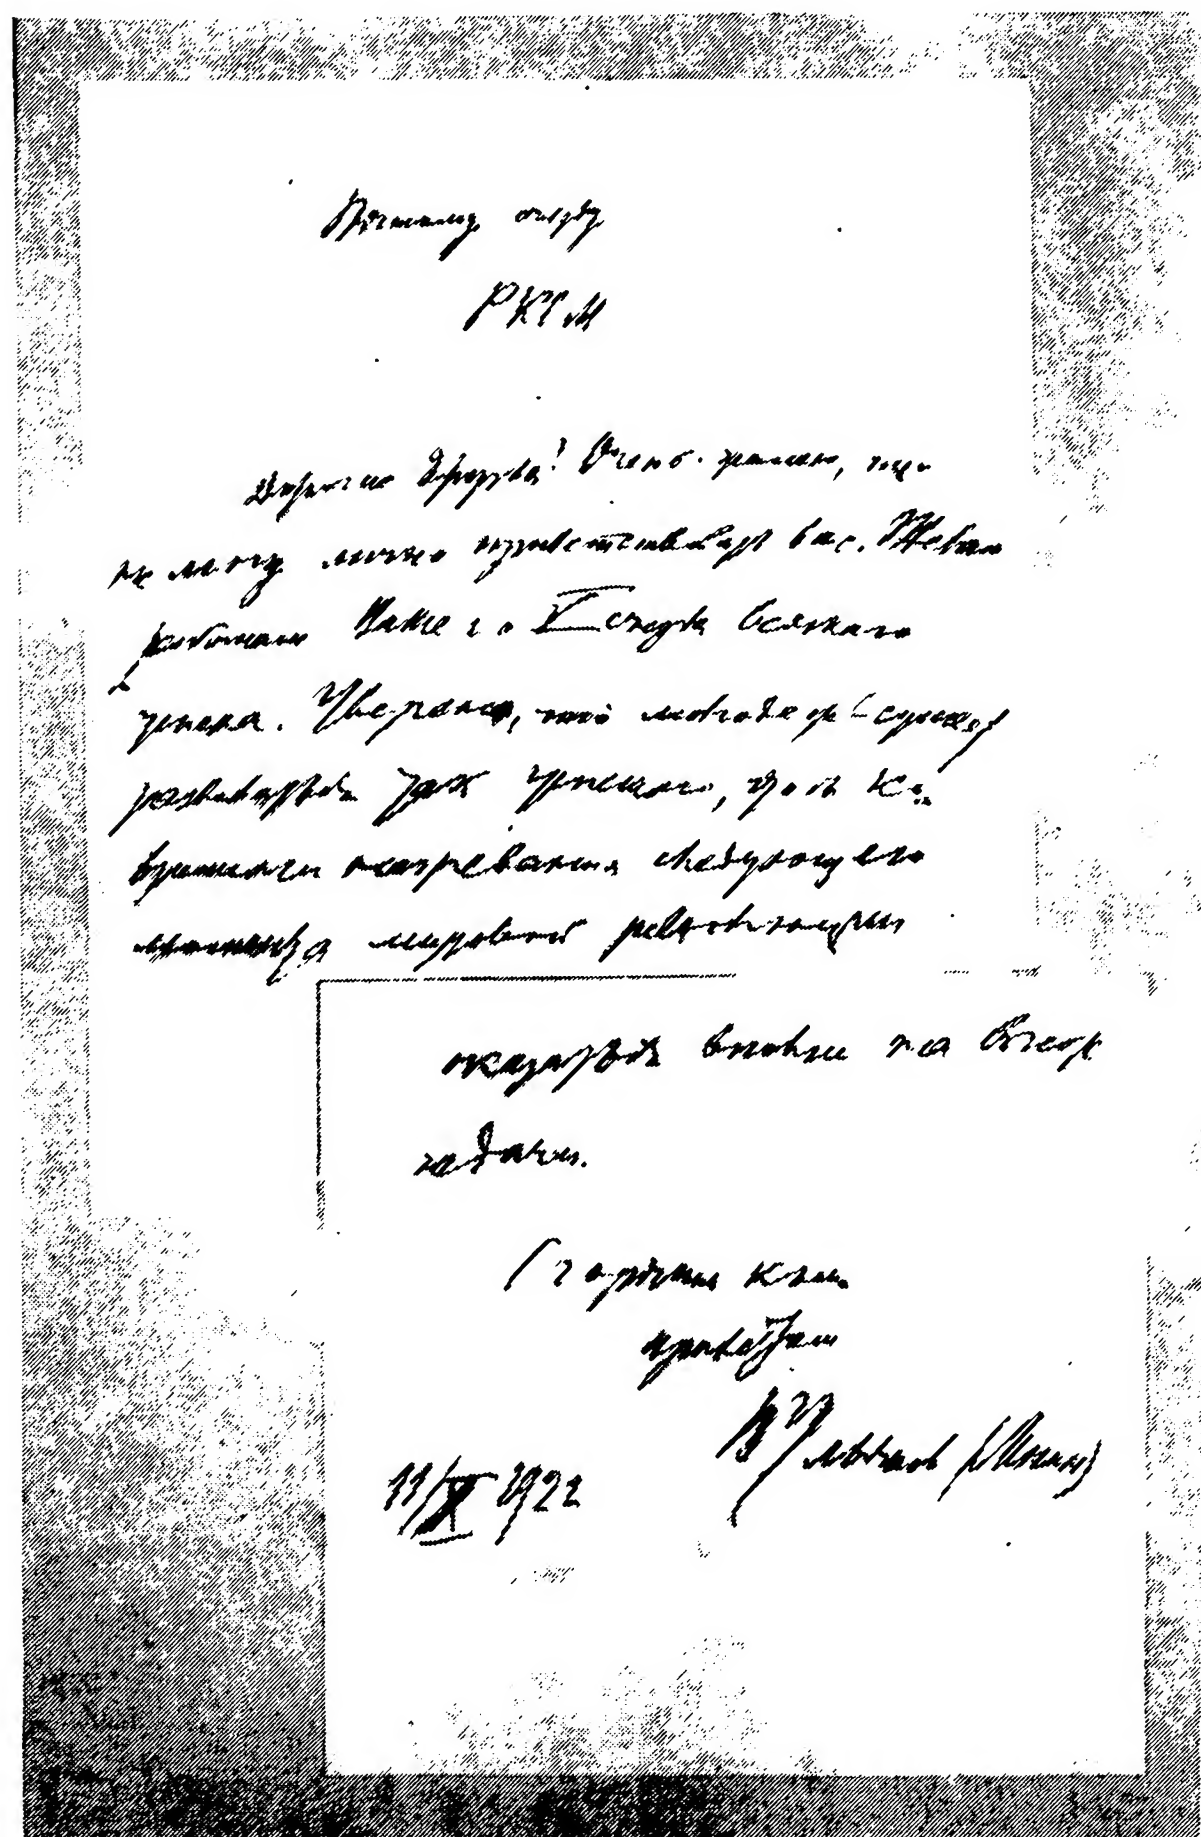 Пятому съезду
РКСМ
Дорогие друзья! Очень жалею, что
не могу лично приветствовать вас. Желаю
работам Вашего V съезда всякого
успеха. Уверен, что молодежь сумеет
развиваться так успешно, чтобы ко
времени назревания следующего
момента мировой революции
оказаться вполне на высоте
задачи.
С горячим коммунистическим
приветом
В Ульянов (Ленин)
11/X 1922